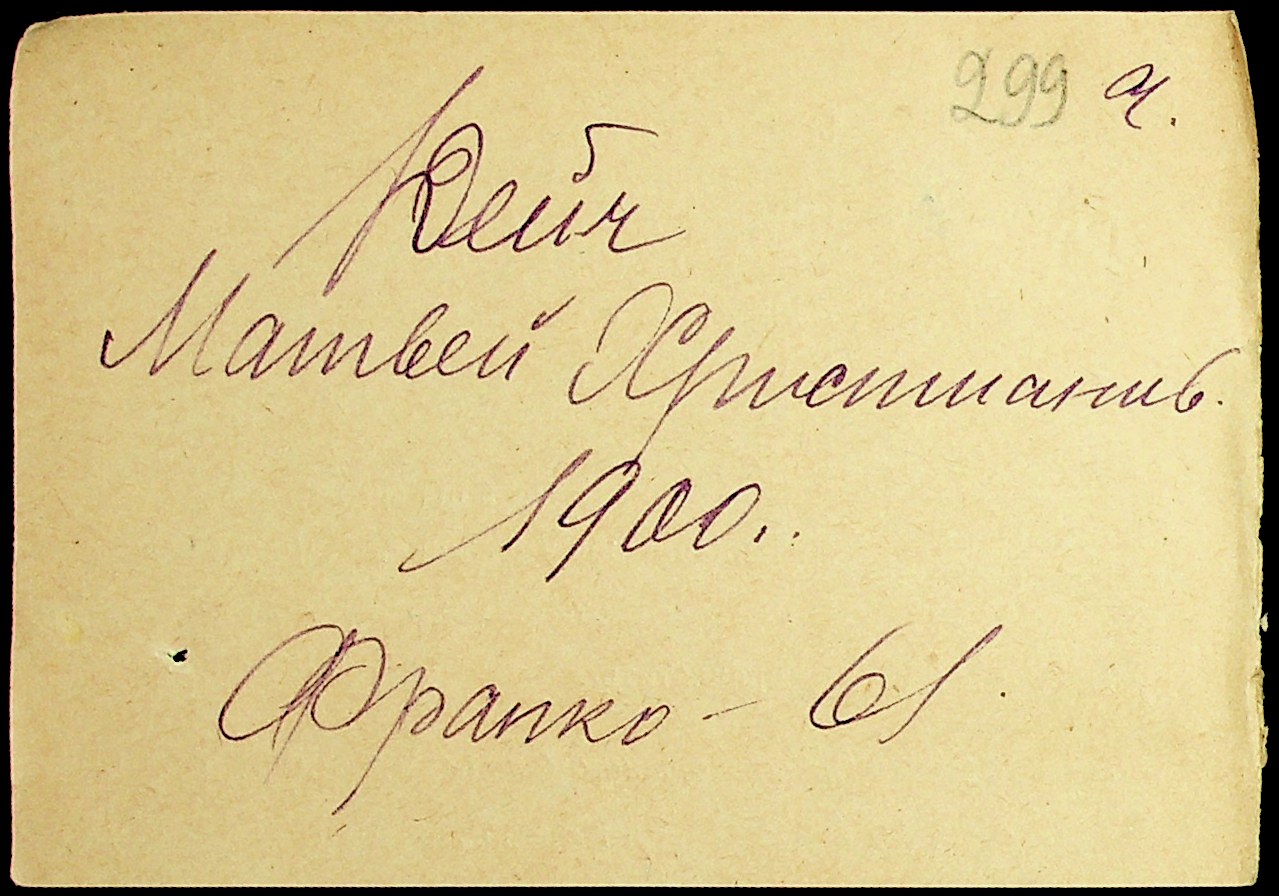 299 ч.
Дейч
Матвей Христианов.
1900..
Франко - 61.